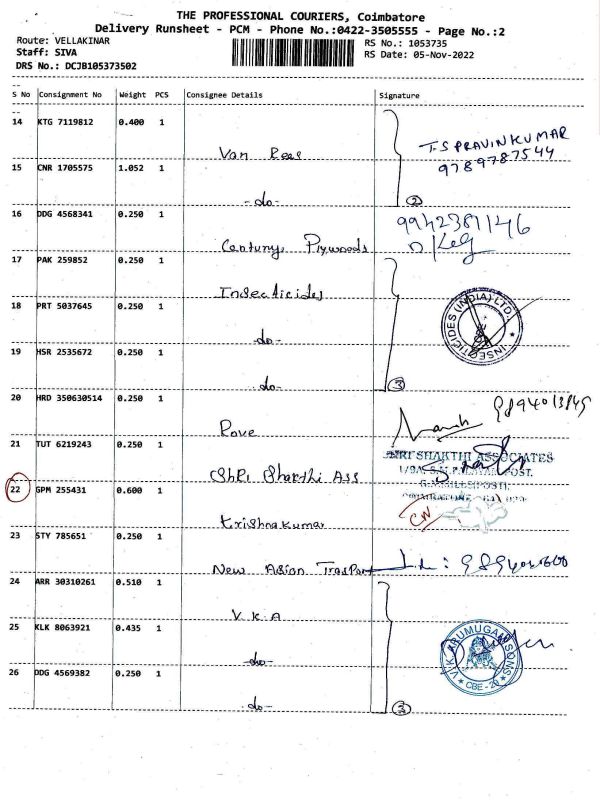 THE PROFESSIONAL COURIERS, Coimbatore
Delivery Runsheet - PCM - Phone No.:0422-3505555 - Page No.:2
Route: VELLAKINAR RS No.: 1053735
Staff: SIVA RS Date: 05-Nov-2022
DRS No.: DCJB105373502
S No Consignment No Weight PCS Consignee Details Signature
14 KTG 7119812 0.400 1
Van Rees T-S PRAVINKUMAR
9789787544
15 CNR 1705575 1.052 1
-do- 2
16 DDG 4568341 0.250 1 9942381146
Century Plywoods
17 PAK 259852 0.250 1
Insecticides
INSECTICIDES (INDIA) LTD.
18 PRT 5037645 0.250 1
-do-
19 HSR 2535672 0.250 1
-do- 3
20 HRD 350630514 0.250 1
21 TUT 6219243 0.250 1
SHRI SHAKTHI ASSOCIATES
Shri Shakthi Ass
22 GPM 255431 0.600 1
Krishnakumar
23 STY 785651 0.250 1
New Asian Trasport
24 ARR 30310261 0.510 1
V.K.A
25 KLK 8063921 0.435 1
-do-
26 DDG 4569382 0.250 1
-do- 3